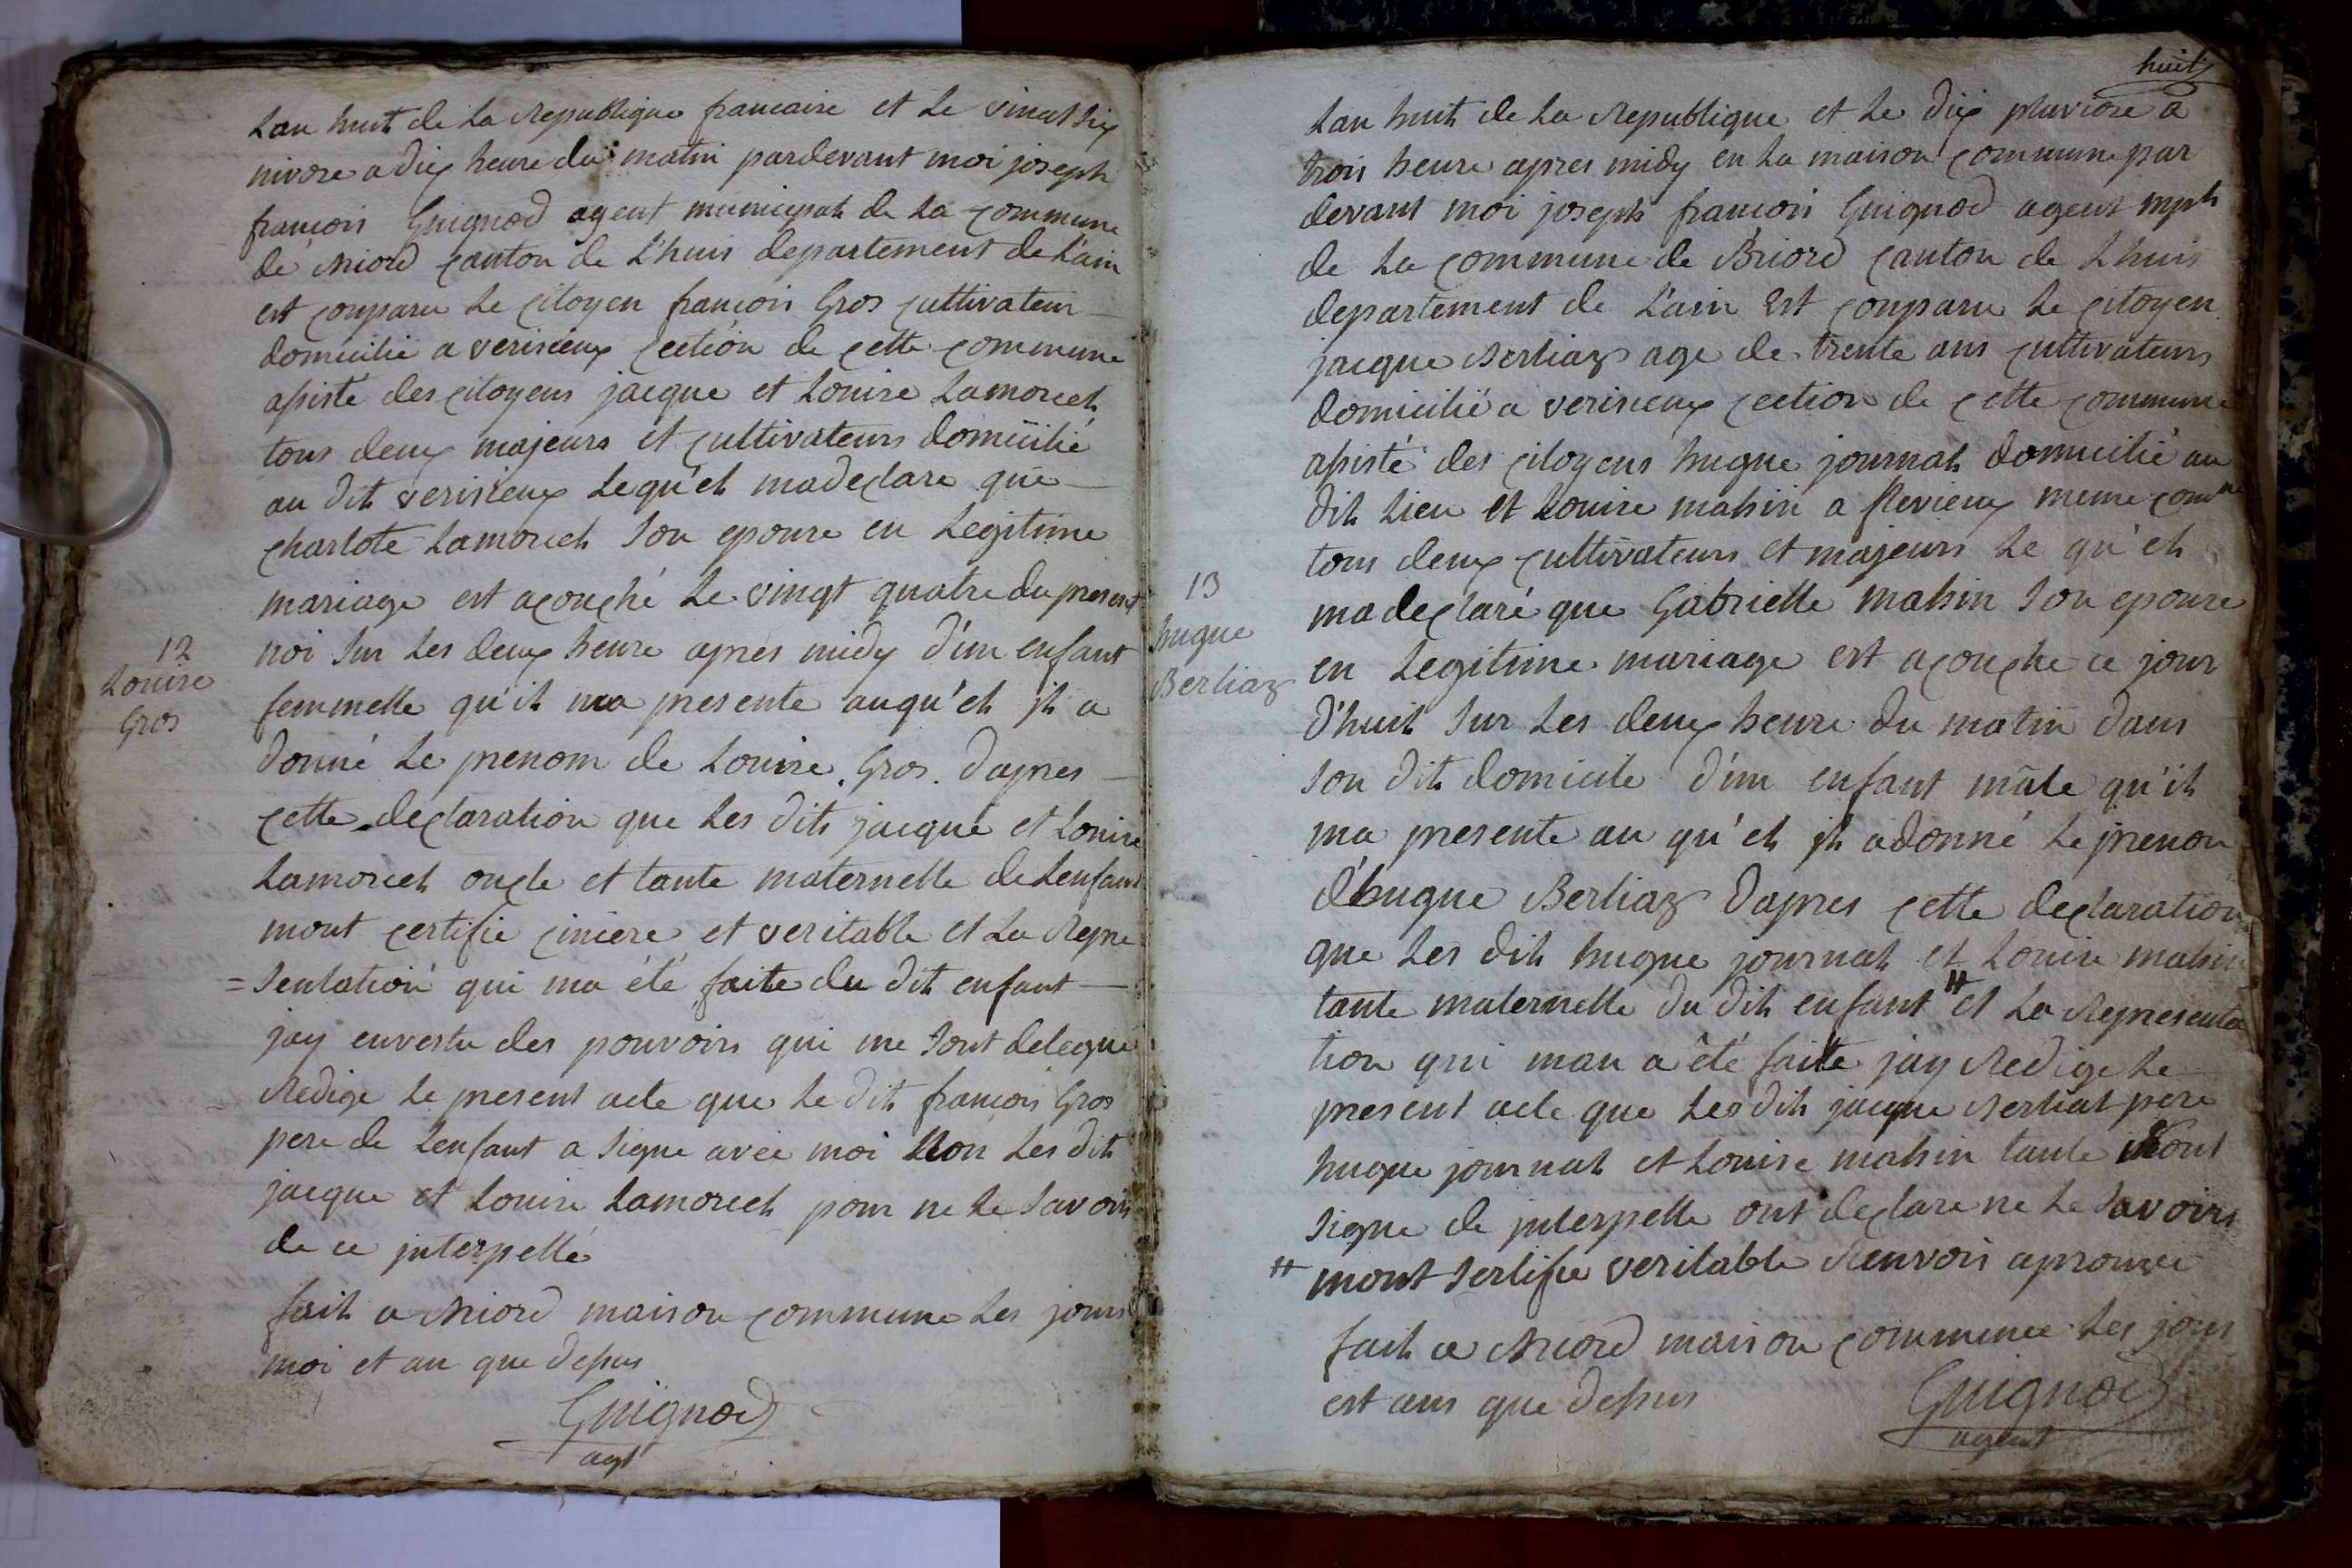 Lan huit de La Republique francaise et Le vingt six
nivose a dix heure du matin pardevant moi joseph
francois Guignod agent municipal de La commune
de Briord canton de L'huis departement de L'ain
est conparu Le citoyen francois Gros cultivateur
domicilié a verisieux section de cette commune
assisté des citoyens jacque et Louise Lamorel
tous deux majeurs et cultivateurs domicilié
au dit verisieux Lequ'el madeclare que
charlote Lamorel son epouse en Legitime
mariage est acouché Le vingt quatre du present
12
Louise
Gros
moi sur Les deux heure apres midy d'un enfant
femmelle qu'il ma presente auqu'el jl a
donné Le prenom de Louise Gros. dapres
cette declaration que Les dits jacque et Louise
Lamorel oncle et tante maternelle de Lenfant
mont certifie cincere et veritable et La Repre
= sentation qui ma été faite du dit enfant
jay envertu des pouvoirs qui me sont delegué
Redige Le present acte que Le dit francois Gros
pere de Lenfant a signe avec moi Non Les dit
jacque et Louise Lamorel pour ne Le savoir
de ce jnterpellé
fait a Briord maison commune Les jours
moi et an que dessus
Guignod
agt
huit
Lan huit de La Republique et Le dix pluviose a
trois heure apres midy en La maison commune par
devant moi joseph francois Guignod agent mpl
de La commune de Briord canton de Lhuis
departement de L'ain Est conparu Le citoyen
jacque Berliaz age de trente ans cultivateurs
domicilié a verisieux section de cette commune
assisté des citoyens hugue journal domicilié au
dit Lieu et Louise malsin a flevieux meme comne
tous deux cultivateurs et majeurs Le qu'el
13
hugue
Berliaz
madeclaré que Gabrielle malsin son epouse
en Legitime mariage est acouche ce jour
d'huit sur Les deux heure du matin dans
son dit domicile d'un enfant mâle qu'il
ma presente au qu'el jl adonné Le prenon
d'hugue Berliaz dapres cette declaration
que Les dit hugue journal et Louise malsin
tante maternelle du dit enfant # et La Representa
tion qui man a été faite jay Redige Le
present acte que Les dit jacque Berliat pere
hugue journal et Louise malsin tante Nont
signe de jnterpelle ont declare ne Le savoirs
# mont sertifie veritable Renvois aprouvé
fait a Briord maison commune Les jour
est ans que dessus
Guignod
agent